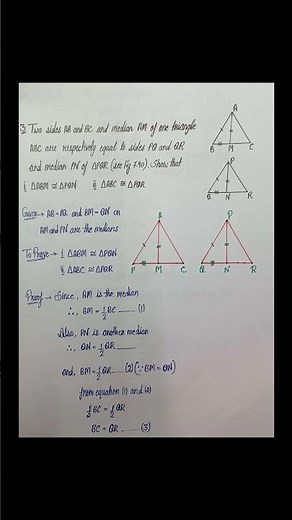 Q Two sides AB and BC and median AM of one triangle
ABC are respectively equal to sides PQ and QR
and median PN of ΔPQR (see Fig 7.40). Show that
i. ΔABM ≅ ΔPQN ii. ΔABC ≅ ΔPQR
A
B M C
P
Q N R
Given → AB = PQ and BM = QN
AM and PN are the medians
To Prove → i. ΔABM ≅ ΔPQN
ii. ΔABC ≅ ΔPQR
P M C
P
Q N R
Proof → Since, AM is the median
∴, BM = 1/2 BC (1)
Also, PN is another median
∴, QN = 1/2 QR
and, BM = 1/2 QR (2) (∵ BM = QN)
from equation (1) and (2)
1/2 BC = 1/2 QR
BC = QR (3)